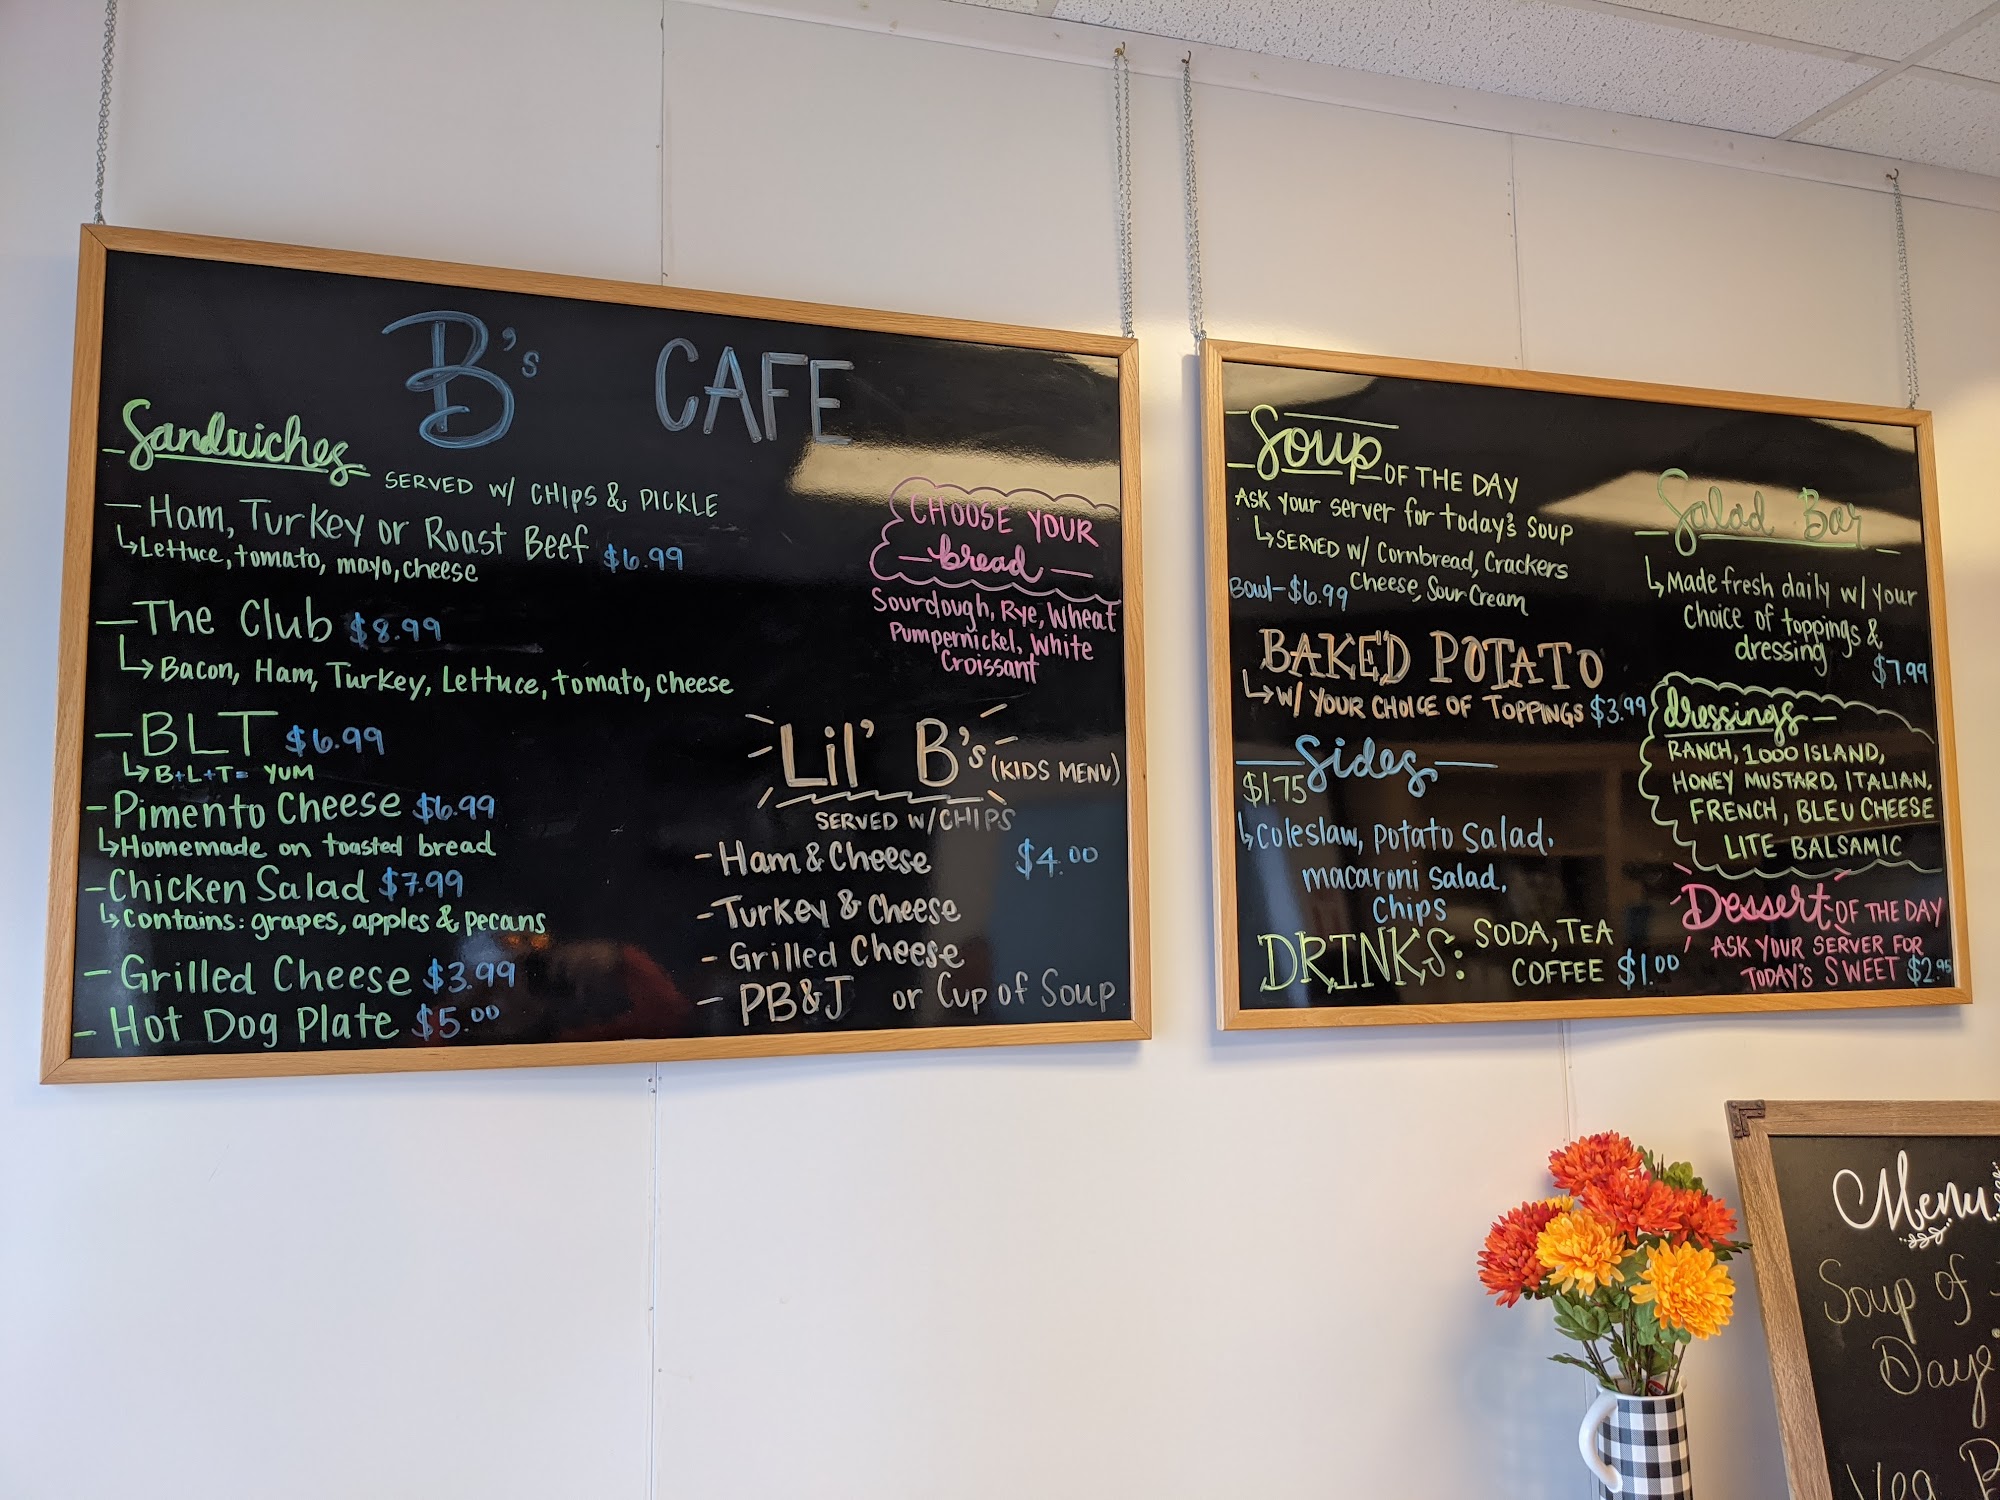 B's CAFE
Sandwiches
SERVED W/ CHIPS & PICKLE
- Ham, Turkey or Roast Beef $6.99
Lettuce, tomato, mayo, cheese
- The Club $8.99
Bacon, Ham, Turkey, Lettuce, tomato, cheese
- BLT $6.99
B+L+T= YUM
- Pimento Cheese $6.99
Homemade on toasted bread
- Chicken Salad $7.99
Contains: grapes, apples & pecans
- Grilled Cheese $3.99
- Hot Dog Plate $5.00
CHOOSE YOUR
bread
Sourdough, Rye, Wheat
Pumpernickel, White
Croissant
Lil' B's (KIDS MENU)
SERVED W/ CHIPS
- Ham & Cheese $4.00
- Turkey & Cheese
- Grilled Cheese
- PB&J or Cup of Soup
Soup OF THE DAY
Ask your server for today's soup
SERVED W/ Cornbread, Crackers
Cheese, Sour Cream
Bowl - $6.99
BAKED POTATO
W/ YOUR CHOICE OF TOPPINGS $3.99
Sides
$1.75
Coleslaw, potato salad,
macaroni salad,
Chips
DRINKS: SODA, TEA
COFFEE $1.00
Salad Bar
Made fresh daily w/ your
choice of toppings &
dressing
$7.99
dressings
RANCH, 1000 ISLAND,
HONEY MUSTARD, ITALIAN,
FRENCH, BLEU CHEESE
LITE BALSAMIC
Dessert - OF THE DAY
ASK YOUR SERVER FOR
TODAY'S SWEET $2.95
Menu
Soup of
Day
Veg